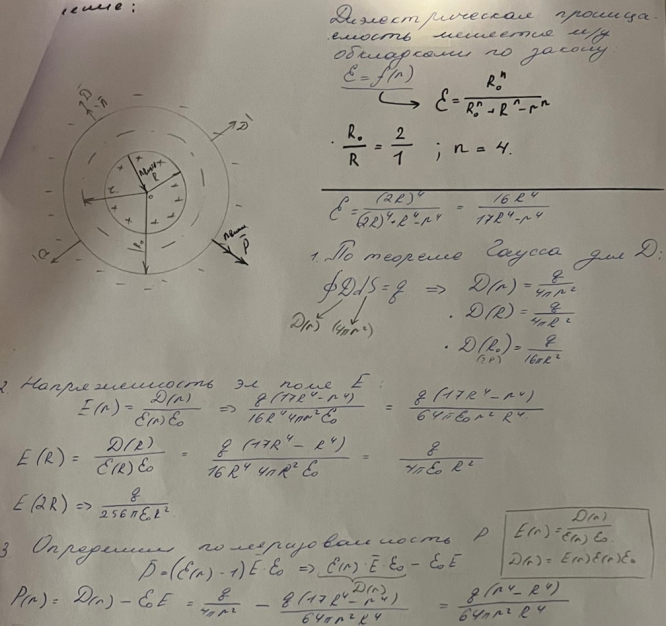 ение:
Диэлектрическая проница-
емость вещества м/у
обкладками по закону
ε = f(r)
ε = R₀ⁿ / (R₀ⁿ + Rⁿ - rⁿ)
R₀/R = 2/1 ; n = 4.
ε = (2R)⁴ / ((2R)⁴ + R⁴ - r⁴) = 16R⁴ / (17R⁴ - r⁴)
1. По теореме Гаусса для D:
∮DdS = q ⇒ D(r) = q / (4πr²)
D(r) (4πr²)
· D(R) = q / (4πR²)
· D(R₀) = q / (16πR²)
(2R)
D
D
Q
R
r
R₀
o
P
2 Напряженность эл поле E:
E(r) = D(r) / (ε(r)ε₀) ⇒ q(17R⁴ - r⁴) / (16R⁴ 4πr² ε₀) = q(17R⁴ - r⁴) / (64πε₀r² R⁴)
E(R) = D(R) / (ε(R)ε₀) = q(17R⁴ - R⁴) / (16R⁴ 4πR² ε₀) = q / (4πε₀ R²)
E(2R) ⇒ q / (256πε₀R²)
3 Определим поляризованность P
E(r) = D(r) / (ε(r)ε₀)
D(r) = E(r)ε(r)ε₀
P̄ = (ε(r) - 1)Ē·ε₀ ⇒ ε(r)·Ē·ε₀ - ε₀E
D(r)
P(r) = D(r) - ε₀E = q / (4πr²) - q(17R⁴ - r⁴) / (64πr² R⁴) = q(r⁴ - R⁴) / (64πr² R⁴)